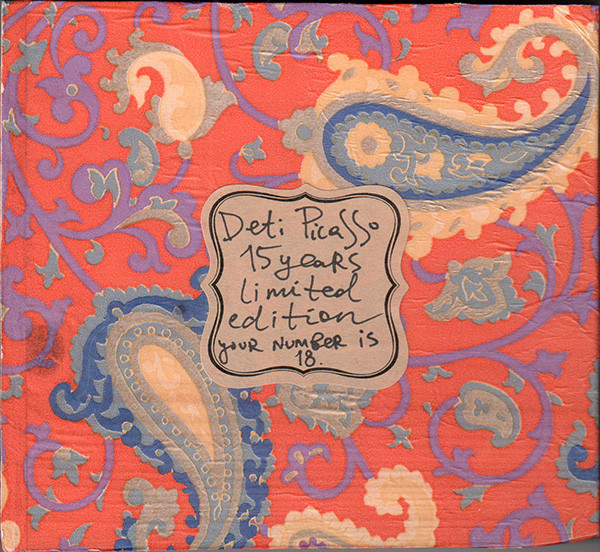 Deti Picasso
15 years
limited
edition
your number is
18.